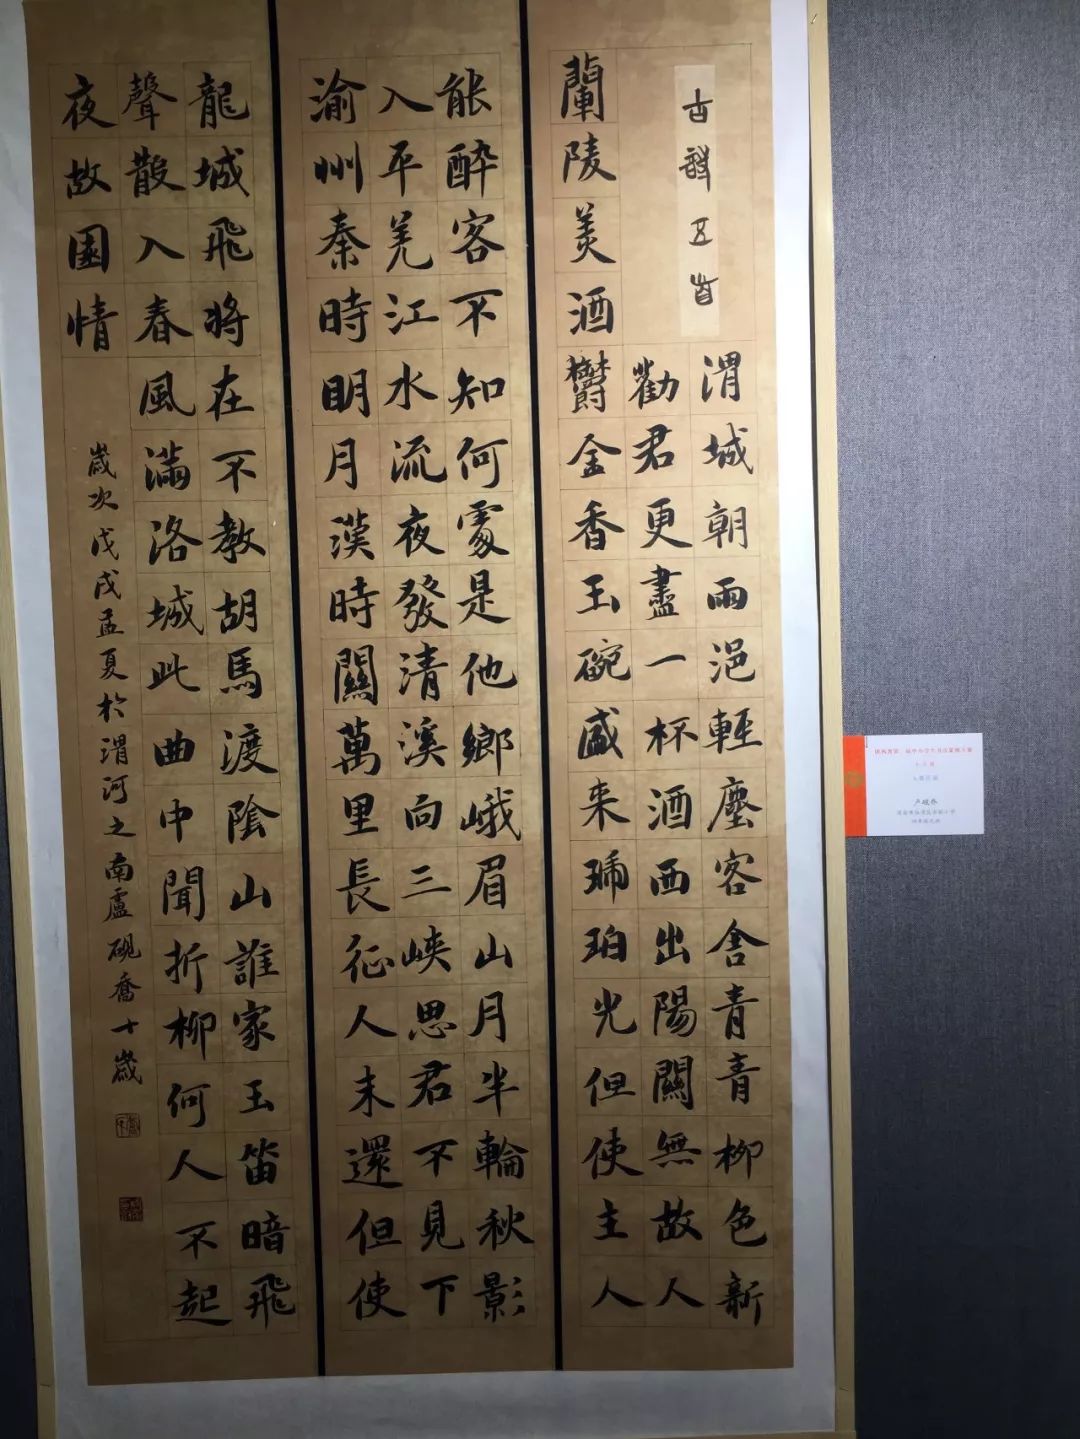 古詩五首
渭城朝雨浥輕塵客舍青青柳色新
勸君更盡一杯酒西出陽關無故人
蘭陵美酒鬱金香玉碗盛来琥珀光但使主人
能醉客不知何處是他鄉峨眉山月半輪秋影
入平羌江水流夜發清溪向三峽思君不見下
渝州秦時明月漢時關萬里長征人未還但使
龍城飛將在不教胡馬渡陰山誰家玉笛暗飛
聲散入春風滿洛城此曲中聞折柳何人不起
夜故園情
歲次戊戌孟夏於渭河之南盧硯喬十歲
卢砚乔